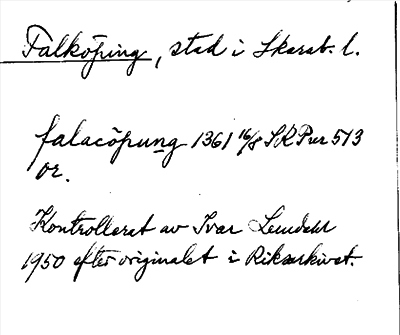 Falköping, stad i Skarab. l.
falacöpung 1361 16/8 SRPer 513
or.
Kontrollerat av Ivar Lundahl
1950 efter originalet i Riksarkivet.